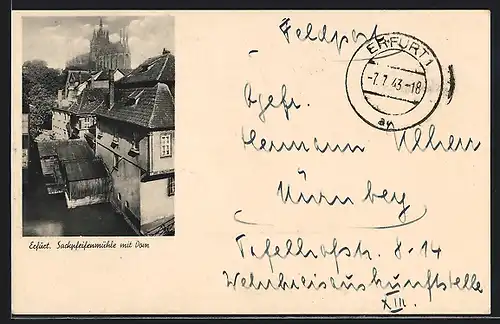 Feldpost
ERFURT 1
-7.7.43-18
an
Ogefr.
Hermann
Nürnberg
Tafelhofstr. 8-14
Wehrkreisauskunftstelle
XIII.
Erfurt. Sackpfeifenmühle mit Dom